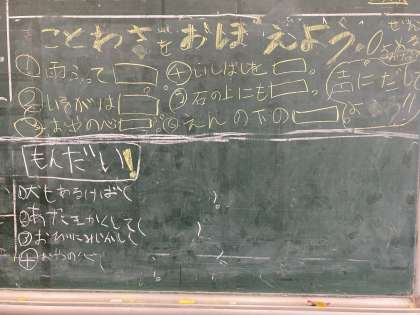 ことわざをおぼえよう。
①雨ふって□。④いしばしを□。
②いそがば□。⑤石の上にも□。
③おやの心□。⑥えんの下の□。
声にだし
もんだい！
①犬もあるけば(　　)。
②あたまかくして(　　)
③おびにみじかし(
④おやの心(